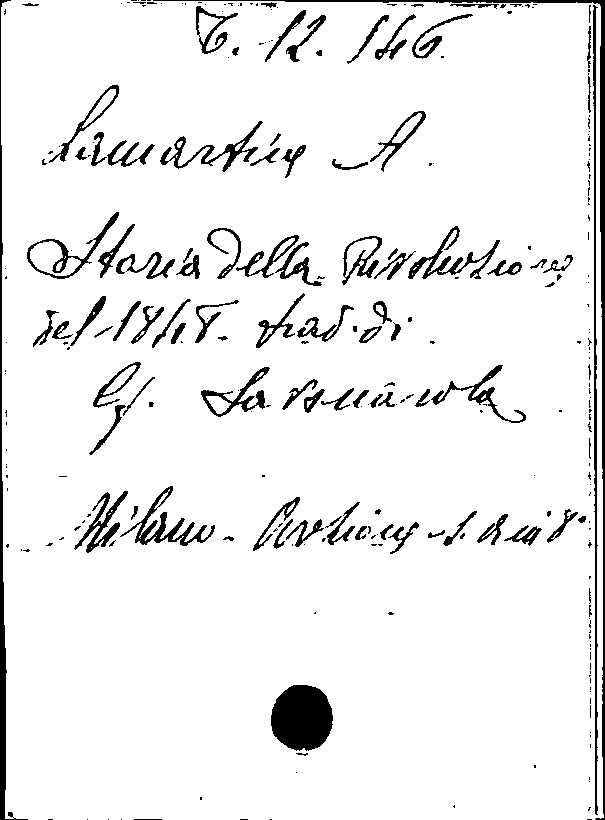 6. 12. 146
Lamartine A.
Storia della Rivoluzione
del 1848. trad. di
G.
Milano - s. a. in 8°